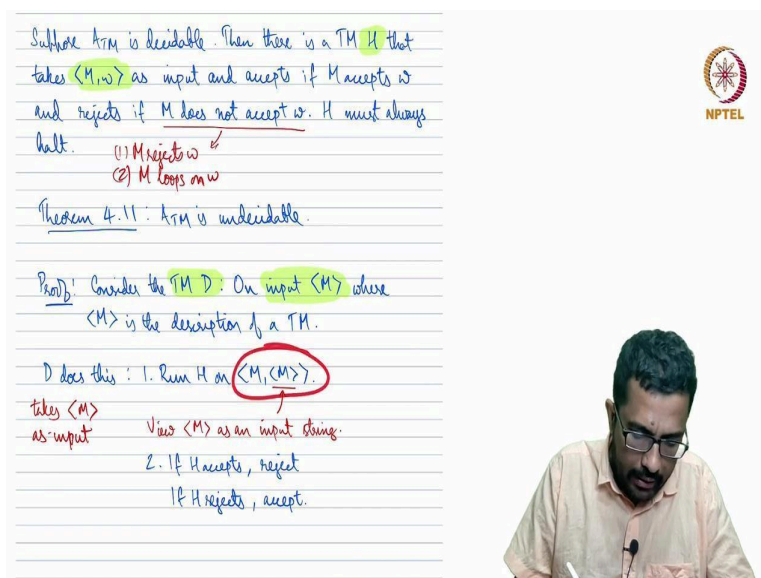 Suppose ATM is decidable. Then there is a TM H that
takes ⟨M,w⟩ as input and accepts if M accepts w
and rejects if M does not accept w. H must always
halt.
(1) M rejects w
(2) M loops on w
Theorem 4.11 : ATM is undecidable.
Proof: Consider the TM D : On input ⟨M⟩ where
⟨M⟩ is the description of a TM.
D does this : 1. Run H on ⟨M, ⟨M⟩⟩.
takes ⟨M⟩
as input
View ⟨M⟩ as an input string.
2. If H accepts, reject
If H rejects, accept.
NPTEL